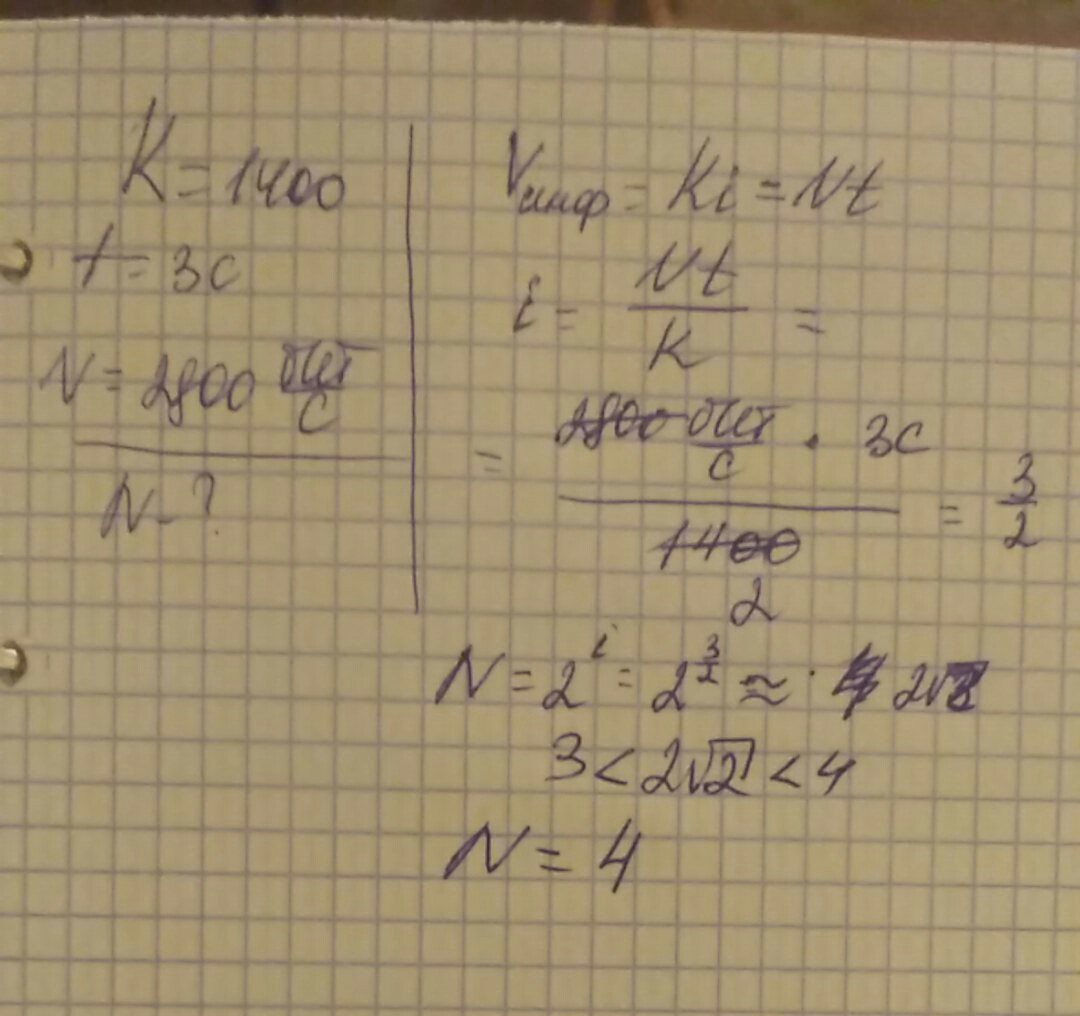 K = 1400
t = 3с
V = 2800 бит/с
N - ?
Vинф = Ki = Vt
i = Vt/K =
= 2800 бит/с · 3с / 1400 = 3/2
2
N = 2^i = 2^(3/2) ≈ 2√2
3 < 2√2 < 4
N = 4